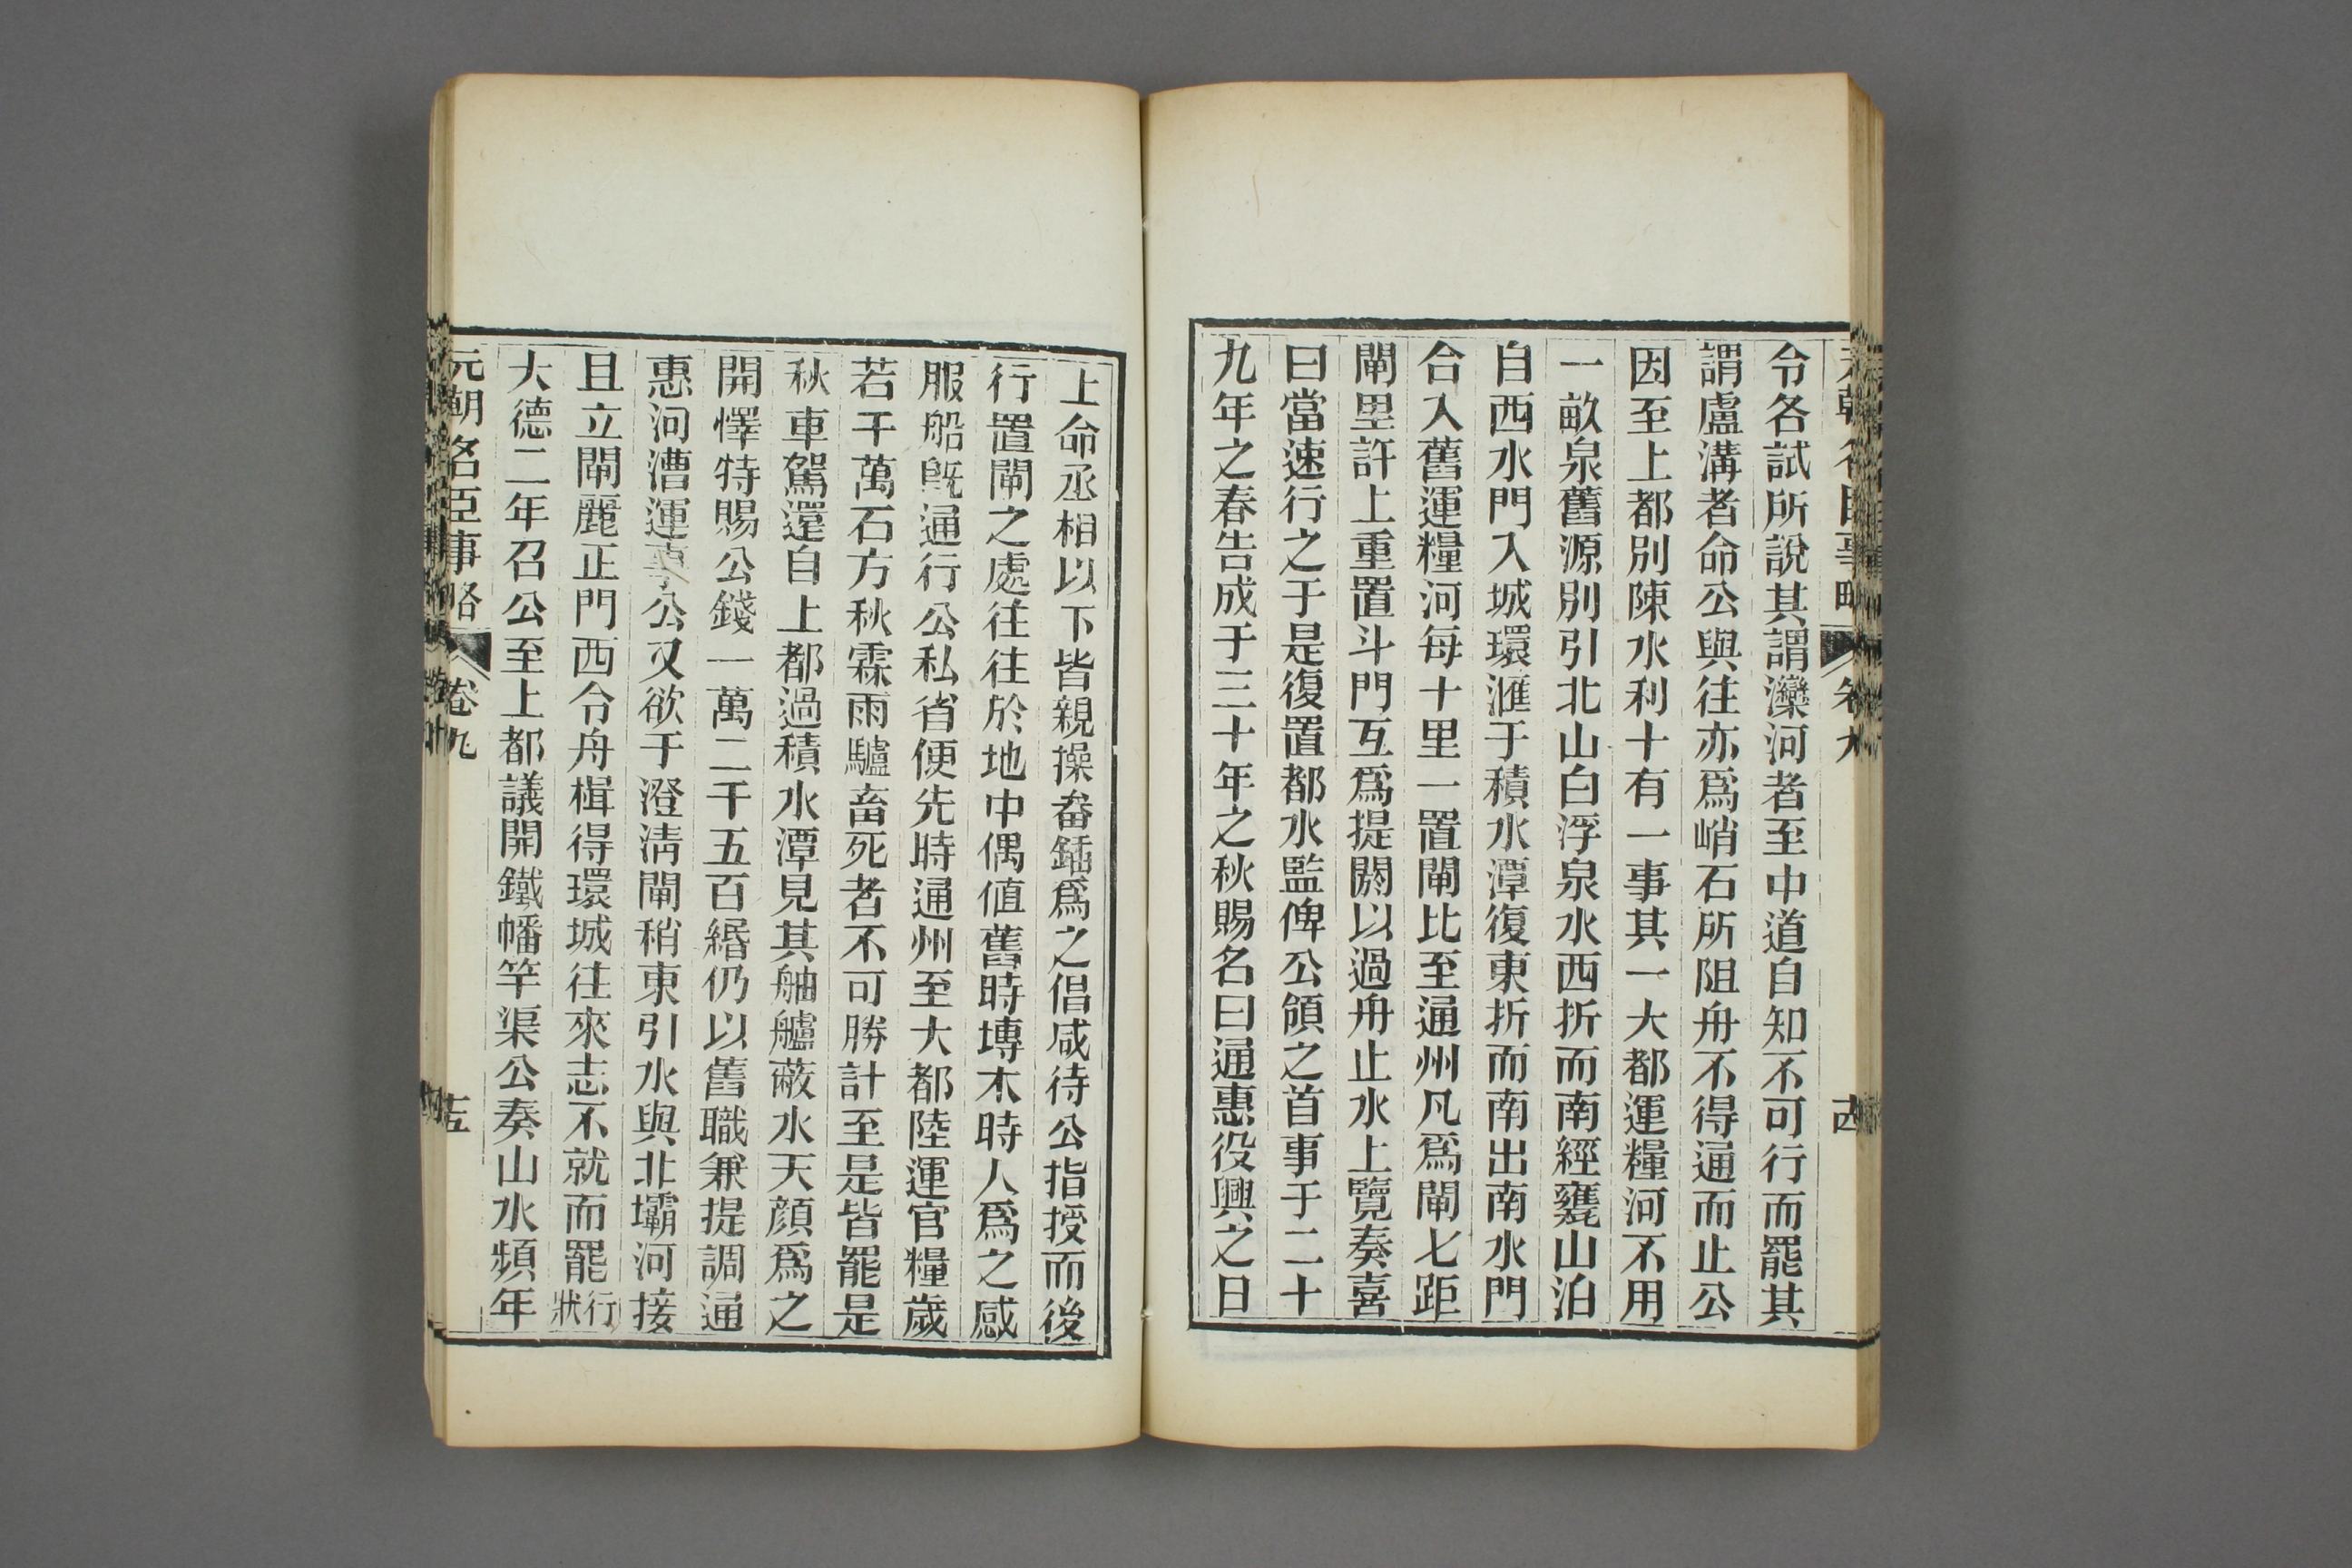 元朝名臣事略 卷九 十四
令各試所說其謂灤河者至中道自知不可行而罷其
謂盧溝者命公與往亦爲峭石所阻舟不得通而止公
因至上都別陳水利十有一事其一大都運糧河不用
一畝泉舊源別引北山白浮泉水西折而南經甕山泊
自西水門入城環滙于積水潭復東折而南出南水門
合入舊運糧河每十里一置閘比至通州凡爲閘七距
閘里許上重置斗門互爲提閼以過舟止水上覽奏喜
曰當速行之于是復置都水監俾公領之首事于二十
九年之春告成于三十年之秋賜名曰通惠役興之日
上命丞相以下皆親操畚鍤爲之倡咸待公指授而後
行置閘之處往往於地中偶值舊時塼木時人爲之感
服船旣通行公私省便先時通州至大都陸運官糧歲
若干萬石方秋霖雨驢畜死者不可勝計至是皆罷是
秋車駕還自上都過積水潭見其舳艫蔽水天顏爲之
開懌特賜公錢一萬二千五百緡仍以舊職兼提調通
惠河漕運事公又欲于澄淸閘稍東引水與北壩河接
且立閘麗正門西令舟楫得環城往來志不就而罷行狀
大德二年召公至上都議開鐵幡竿渠公奏山水頻年
元朝名臣事略 卷九 十五